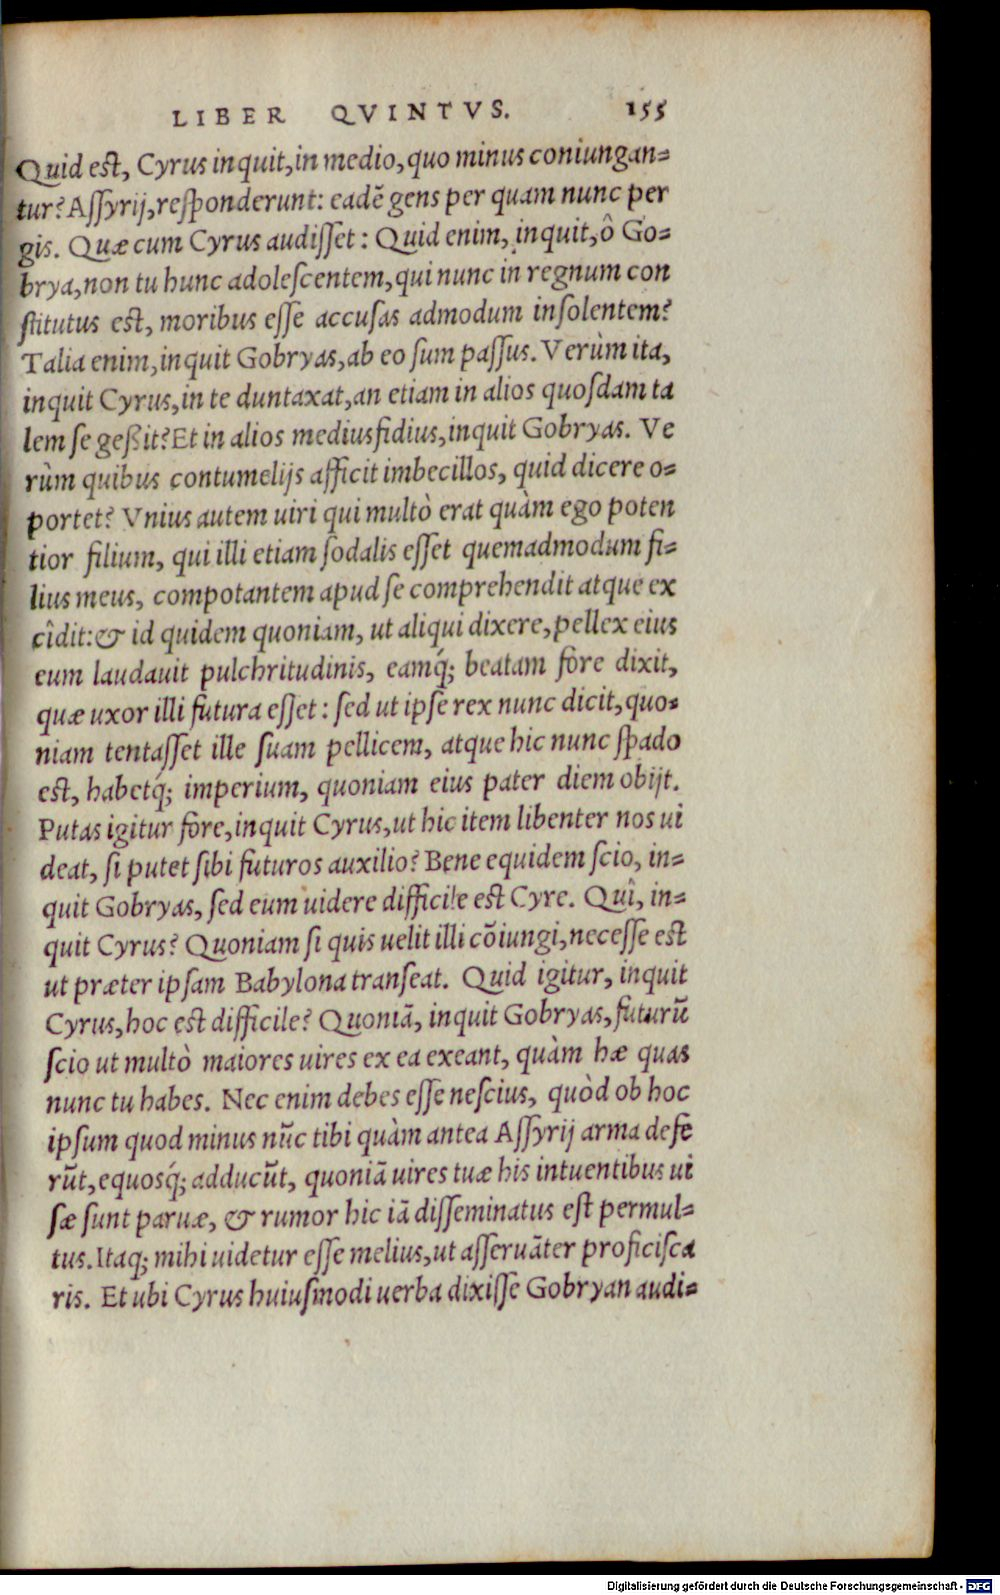 LIBER QVINTVS. 155
Quid est, Cyrus inquit, in medio, quo minus coniungan=
tur? Aſſyrij, reſponderunt: eadē gens per quam nunc per
gis. Quæ cum Cyrus audiſſet: Quid enim, inquit, ô Go=
brya, non tu hunc adoleſcentem, qui nunc in regnum con
ſtitutus est, moribus eſſe accuſas admodum inſolentem?
Talia enim, inquit Gobryas, ab eo ſum paſſus. Verùm ita,
inquit Cyrus, in te duntaxat, an etiam in alios quoſdam ta
lem ſe geßit? Et in alios mediusfidius, inquit Gobryas. Ve
rùm quibus contumelijs afficit imbecillos, quid dicere o=
portet? Vnius autem uiri qui multò erat quàm ego poten
tior filium, qui illi etiam ſodalis eſſet quemadmodum fi=
lius meus, compotantem apud ſe comprehendit atque ex
cîdit: & id quidem quoniam, ut aliqui dixere, pellex eius
eum laudauit pulchritudinis, eamq́; beatam fore dixit,
quæ uxor illi futura eſſet: ſed ut ipſe rex nunc dicit, quo=
niam tentaſſet ille ſuam pellicem, atque hic nunc ſpado
est, habetq́; imperium, quoniam eius pater diem obijt.
Putas igitur fore, inquit Cyrus, ut hic item libenter nos ui
deat, ſi putet ſibi futuros auxilio? Bene equidem ſcio, in=
quit Gobryas, ſed eum uidere difficile est Cyre. Quî, in=
quit Cyrus? Quoniam ſi quis uelit illi cōiungi, neceſſe est
ut præter ipſam Babylona tranſeat. Quid igitur, inquit
Cyrus, hoc est difficile? Quoniā, inquit Gobryas, futurū
ſcio ut multò maiores uires ex ea exeant, quàm hæ quas
nunc tu habes. Nec enim debes eſſe neſcius, quòd ob hoc
ipſum quod minus nūc tibi quàm antea Aſſyrij arma defe
rūt, equosq́; adducūt, quoniā uires tuæ his intuentibus ui
ſæ ſunt paruæ, & rumor hic iā diſſeminatus eſt permul=
tus. Itaq; mihi uidetur eſſe melius, ut aſſeruāter proficiſca
ris. Et ubi Cyrus huiuſmodi uerba dixiſſe Gobryan audi=
Digitalisierung gefördert durch die Deutsche Forschungsgemeinschaft - DFG